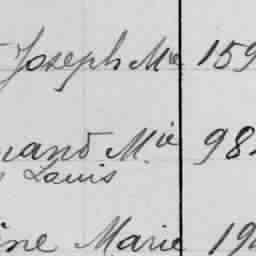 Joseph Mie 159
nand Mie 98
Louis
ine Marie 19